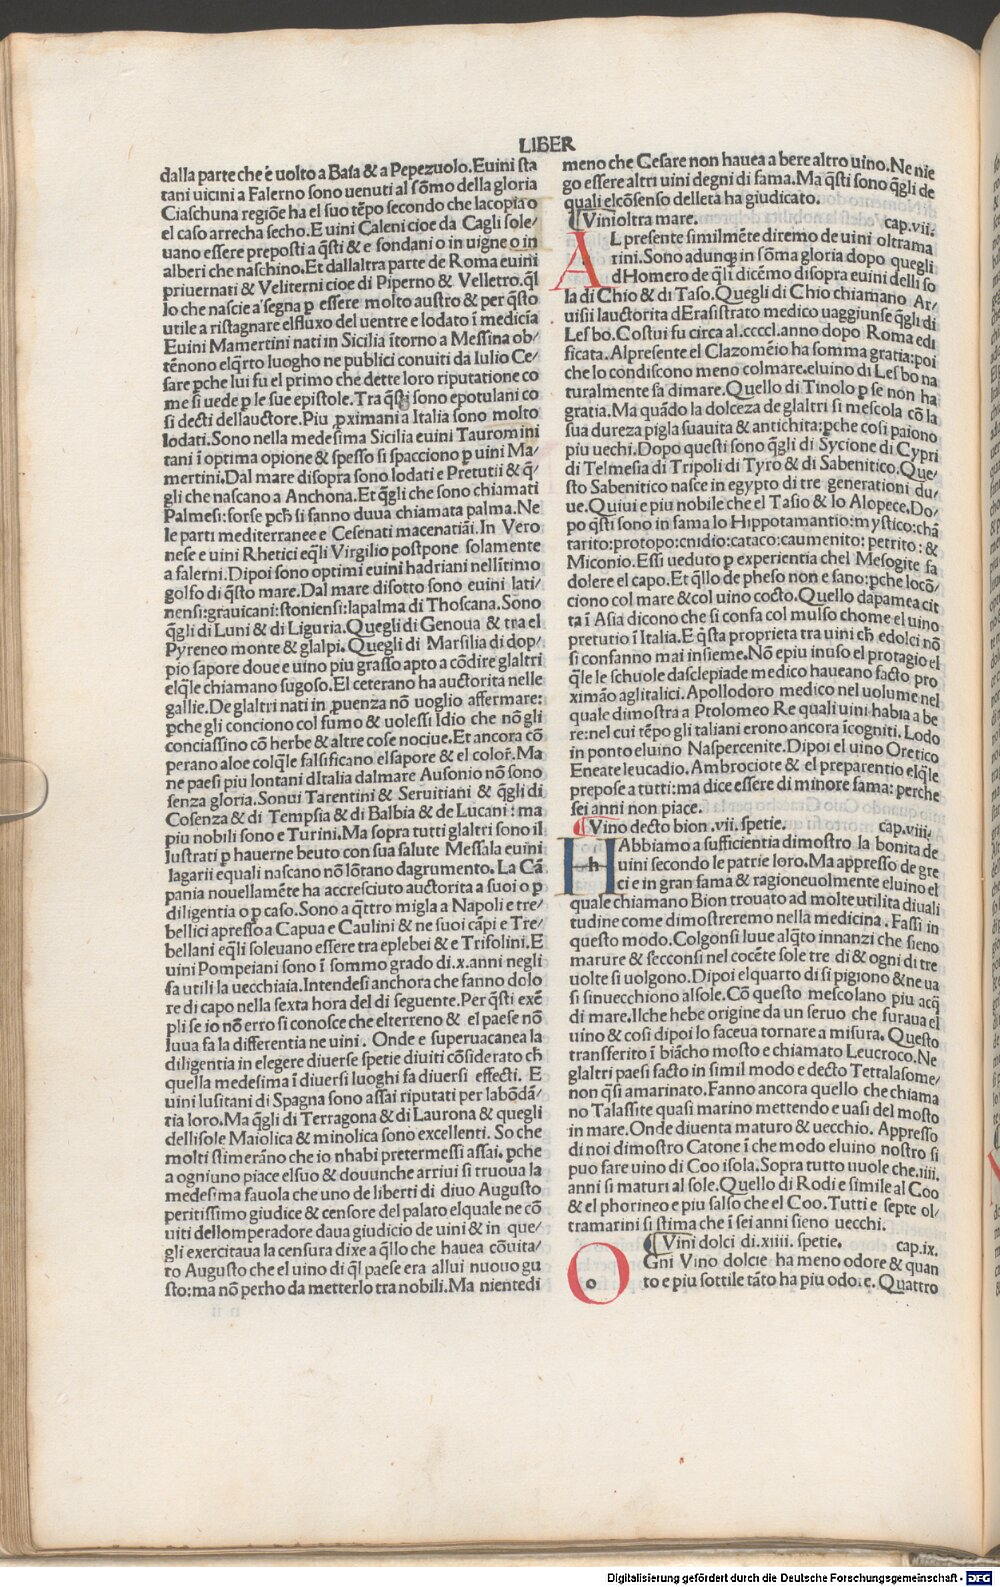 LIBER
dalla parte che è uolto a Baia & a Pepezuolo.Euini sta
tani uicini a Falerno sono uenuti al sõmo della gloria
Ciaschuna regiõe ha el suo tẽpo secondo che lacopia o
el caso arrecha secho.E uini Caleni cioe da Cagli sole/
uano essere preposti a q̃sti & e fondani o in uigne o in
alberi che naschino.Et dallaltra parte de Roma euini
priuernati & Veliterni cioe di Piperno & Velletro.q̃l
lo che nascie a segna ꝑ essere molto austro & per q̃sto
utile a ristagnare elfluxo del uentre e lodato ĩ medicĩa
Euini Mamertini nati in Sicilia ĩtorno a Messina ob/
tẽnono elq̃rto luogho ne publici conuiti da Iulio Ce/
sare ꝑche lui fu el primo che dette loro riputatione co
me si uede ꝑ le sue epistole.Tra q̃sti sono epotulani co
si decti dellauctore.Piu ꝓximani a Italia sono molto
lodati.Sono nella medesima Sicilia euini Tauromini
tani ĩ optima opione & spesso si spacciono ꝑ uini Ma/
mertini.Dal mare disopra sono lodati e Pretutii & q̃/
gli che nascano a Anchona.Et q̃gli che sono chiamati
Palmesi:forse ꝑch̃ si fanno duua chiamata palma.Ne
le parti mediterranee e Cesenati macenatiãi.In Vero
nese e uini Rhetici eq̃li Virgilio postpone solamente
a falerni.Dipoi sono optimi euini hadriani nellĩtimo
golfo di q̃sto mare.Dal mare disotto sono euini lati/
nensi:grauicani:stoniensi:lapalma di Thoscana.Sono
q̃gli di Luni & di Liguria.Quegli di Genoua & tra el
Pyreneo monte & glalpi.Quegli di Marsilia di dop/
pio sapore doue e uino piu grasso apto a cõdire glaltri
elq̃le chiamano sugoso.El ceterano ha auctorita nelle
gallie.De glaltri nati in ꝓuenza nõ uoglio affermare:
ꝑche gli conciono col fumo & uolessi Idio che nõ gli
conciassino cõ herbe & altre cose nociue.Et ancora cõ
perano aloe colq̃le falsificano elsapore & el color̃.Ma
ne paesi piu lontani dItalia dalmare Ausonio nõ sono
senza gloria.Sonui Tarentini & Seruitiani & q̃gli di
Cosenza & di Tempsia & di Balbia & de Lucani:ma
piu nobili sono e Turini.Ma sopra tutti glaltri sono il
lustrati ꝑ hauerne beuto con sua salute Messala euini
lagarii equali nascano nõ lõtano dagrumento.La Cã
pania nouellamẽte ha accresciuto auctorita a suoi o ꝑ
diligentia o ꝑ caso.Sono a q̃ttro migla a Napoli e tre/
bellici apresso a Capua e Caulini & ne suoi cãpi e Tre/
bellani eq̃li soleuano essere tra eplebei & e Trifolini.E
uini Pompeiani sono ĩ sommo grado di.x.anni negli
fa utili la uecchiaia.Intendesi anchora che fanno dolo
re di capo nella sexta hora del di seguente.Per q̃sti exẽ
pli se io nõ erro si conosce che elterreno & el paese nõ
luua fa la differentia ne uini. Onde e superuacanea la
diligentia in elegere diuerse spetie diuiti cõsiderato ch̃
quella medesima ĩ diuersi luoghi fa diuersi effecti. E
uini lusitani di Spagna sono assai riputati per labõdã/
tia loro.Ma q̃gli di Terragona & di Laurona & quegli
dellisole Maiolica & minolica sono excellenti. So che
molti stimerãno che io nhabi pretermessi assai.ꝑche
a ogniuno piace elsuo & douunche arriui si truoua la
medesima fauola che uno de liberti di diuo Augusto
peritissimo giudice & censore del palato elquale ne cõ
uiti dellomperadore daua giudicio de uini & in que/
gli exercitaua la censura dixe a q̃llo che hauea cõuita/
to Augusto che el uino di q̃l paese era allui nuouo gu
sto:ma nõ perho da metterlo tra nobili.Ma nientedi
meno che Cesare non hauea a bere altro uino.Ne nie
go essere altri uini degni di fama.Ma q̃sti sono q̃gli de
quali elcõsenso delleta ha giudicato.
Vinioltra mare. cap.vii.
AL presente similmẽte diremo de uini oltrama
rini.Sono adunqȝ in sõma gloria dopo quegli
dHomero de q̃li dicẽmo disopra euini delli so
la di Chio & di Taso.Quegli di Chio chiamano Ar/
uisii lauctorita dErasistrato medico uaggiunse q̃gli di
Lesbo.Costui fu circa al.ccccl.anno dopo Roma edi
ficata.Alpresente el Clazomẽio ha somma gratia:poi
che lo condiscono meno colmare.eluino di Lesbo na
turalmente sa dimare.Quello di Tinolo ꝑ se non ha
gratia.Ma quãdo la dolceza de glaltri si mescola cõ la
sua dureza pigla suauita & antichita:ꝑche cosi paiono
piu uechi.Dopo questi sono q̃gli di Sycione di Cypri
di Telmesia di Tripoli di Tyro & di Sabenitico.Que/
sto Sabenitico nasce in egypto di tre generationi du/
ue.Quiui e piu nobile che el Tasio & lo Alopece.Do/
po q̃sti sono in fama lo Hippotamantio:mystico:chã
tarito:protopo:cnidio:cataco:caumenito: petrito: &
Miconio.Essi ueduto ꝑ experientia chel Mesogite fa
dolere el capo.Et q̃llo de pheso non e sano:ꝑche locõ/
ciono col mare & col uino cocto.Quello dapamea cit
ta ĩ Asia dicono che si confa col mulso chome el uino
pretutio ĩ Italia.E q̃sta proprieta tra uini ch̃ edolci nõ
si confanno mai insieme.Nõ epiu inuso el protagio el
q̃le le schuole dasclepiade medico haueano facto pro
ximão aglitalici.Apollodoro medico nel uolume nel
quale dimostra a Ptolomeo Re quali uini habia a be
re:nel cui tẽpo gli taliani erono ancora ĩcogniti.Lodo
in ponto eluino Naspercenite.Dipoi el uino Oretico
Eneate leucadio.Ambrociote & el preparentio elq̃le
prepose a tutti:ma dice essere di minore fama:perche
sei anni non piace.
Vino decto bion .vii. spetie. cap.viii.
HAbbiamo a sufficientia dimostro la bonita de
uini secondo le patrie loro.Ma appresso de gre
ci e in gran fama & ragioneuolmente eluino el
quale chiamano Bion trouato ad molte utilita diuali
tudine come dimostreremo nella medicina.Fassi in
questo modo.Colgonsi luue alq̃to innanzi che sieno
mature & secconsi nel cocẽte sole tre di & ogni di tre
uolte si uolgono.Dipoi elquarto di si pigiono & ne ua
si sinuecchiono alsole.Cõ questo mescolano piu acq̃
di mare.Ilche hebe origine da un seruo che furaua el
uino & cosi dipoi lo faceua tornare a misura. Questo
transferito ĩ biãcho mosto e chiamato Leucroco.Ne
glaltri paesi facto in simil modo e decto Tettalasome/
non q̃si amarinato.Fanno ancora quello che chiama
no Talassite quasi marino mettendo e uasi del mosto
in mare.Onde diuenta maturo & uecchio. Appresso
di noi dimostro Catone ĩ che modo eluino nostro si
puo fare uino di Coo isola.Sopra tutto uuole che.iiii.
anni si maturi al sole.Quello di Rodi e simile al Coo
& el phorineo e piu salso che el Coo.Tutti e septe ol/
tramarini si stima che ĩ sei anni sieno uecchi.
Vini dolci di.xiiii. spetie. cap.ix.
OGni Vino dolcie ha meno odore & quan
to e piu sottile tãto ha piu odo.e.Quattro
Digitalisierung gefördert durch die Deutsche Forschungsgemeinschaft - DFG